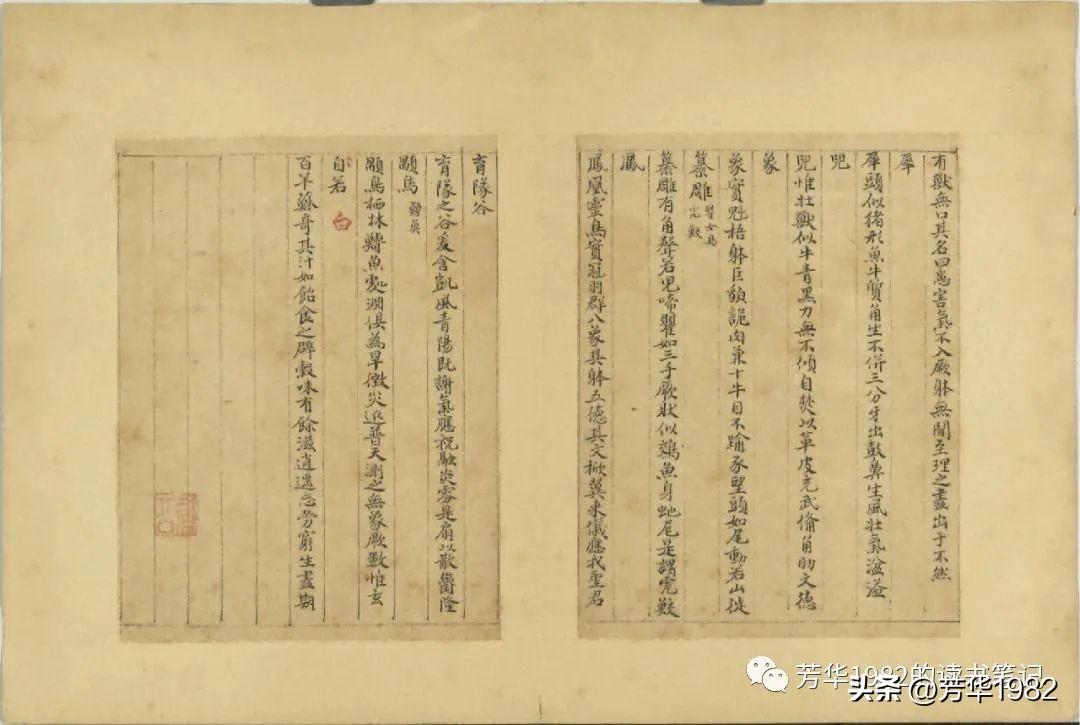 有獸無口其名曰䍺害氣不入厥躰無間至理之盡出于不然
犀
犀頭似猪形兼牛質角生不併三分牙出鼓鼻生風壯氣溢溢
兕
兕惟壯獸似牛青黑力無不傾自焚以革皮充武俻角助文德
象
象實魁梧躰巨貌詭肉兼十牛目不踰豕望頭如尾動若山徙
纂雕
纂雕有角聲若兒啼瞿如三手厥狀似鵁魚身虵尾是謂虎鮫
鳳
鳳凰靈鳥實冠羽群八象其躰五德其文掀翼來儀應我聖君
育隧谷
育隧之谷爰含凱風青陽既謝氣應祝融炎雰是扇以散鬱隆
顒鳥
顒鳥栖林鱄魚處淵俱為旱徵災延普天測之無象厥數惟玄
白䓘
百䓘蘇奇其汁如飴食之辟穀味有餘滋逍遥忘勞窮生盡期
芳华1982的读书笔记
头条 @芳华1982